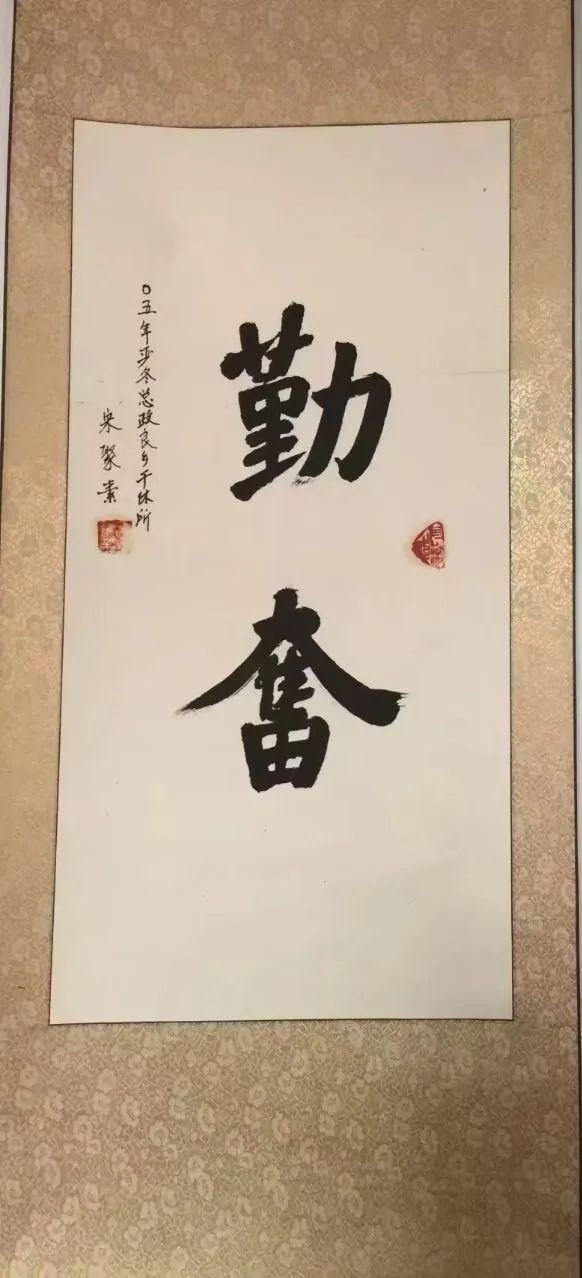 勤
奮
〇五年孟冬总政良乡干休所
宋聚素